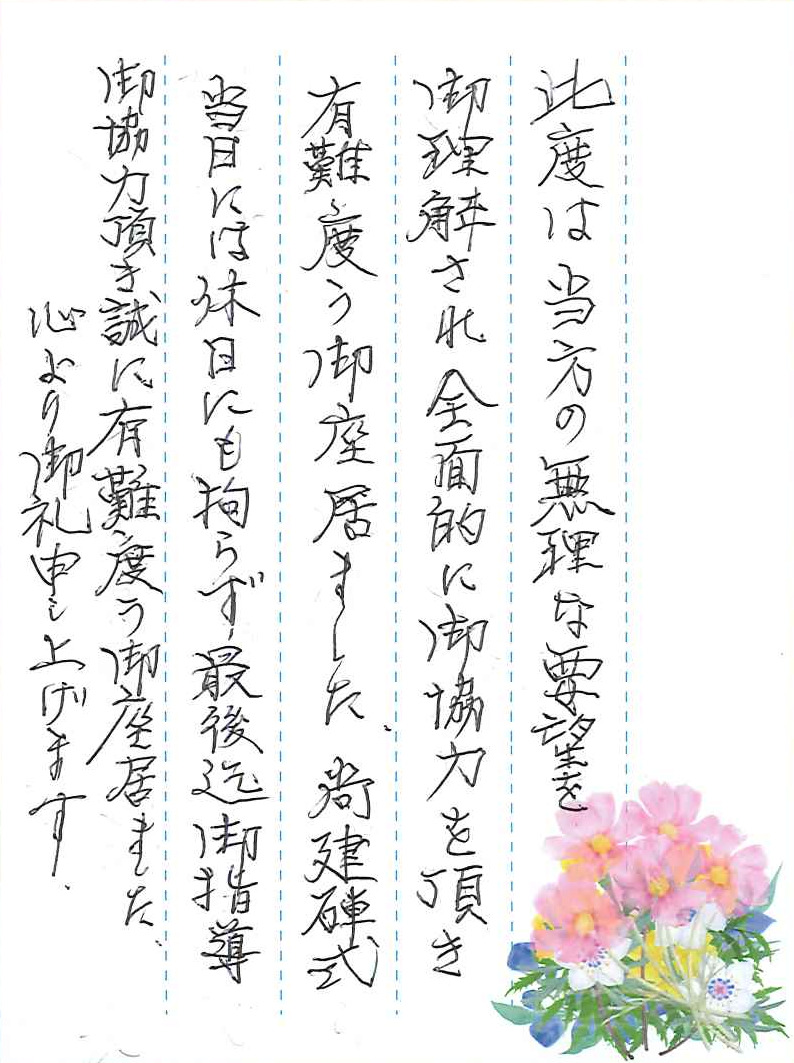 此度は当方の無理な要望を
御理解され全面的に御協力を頂き
有難度う御座居ました、尚建碑式
当日には休日にも拘らず、最後迄御指導
御協力頂き誠に有難度う御座居ました、
心より御礼申し上げます、